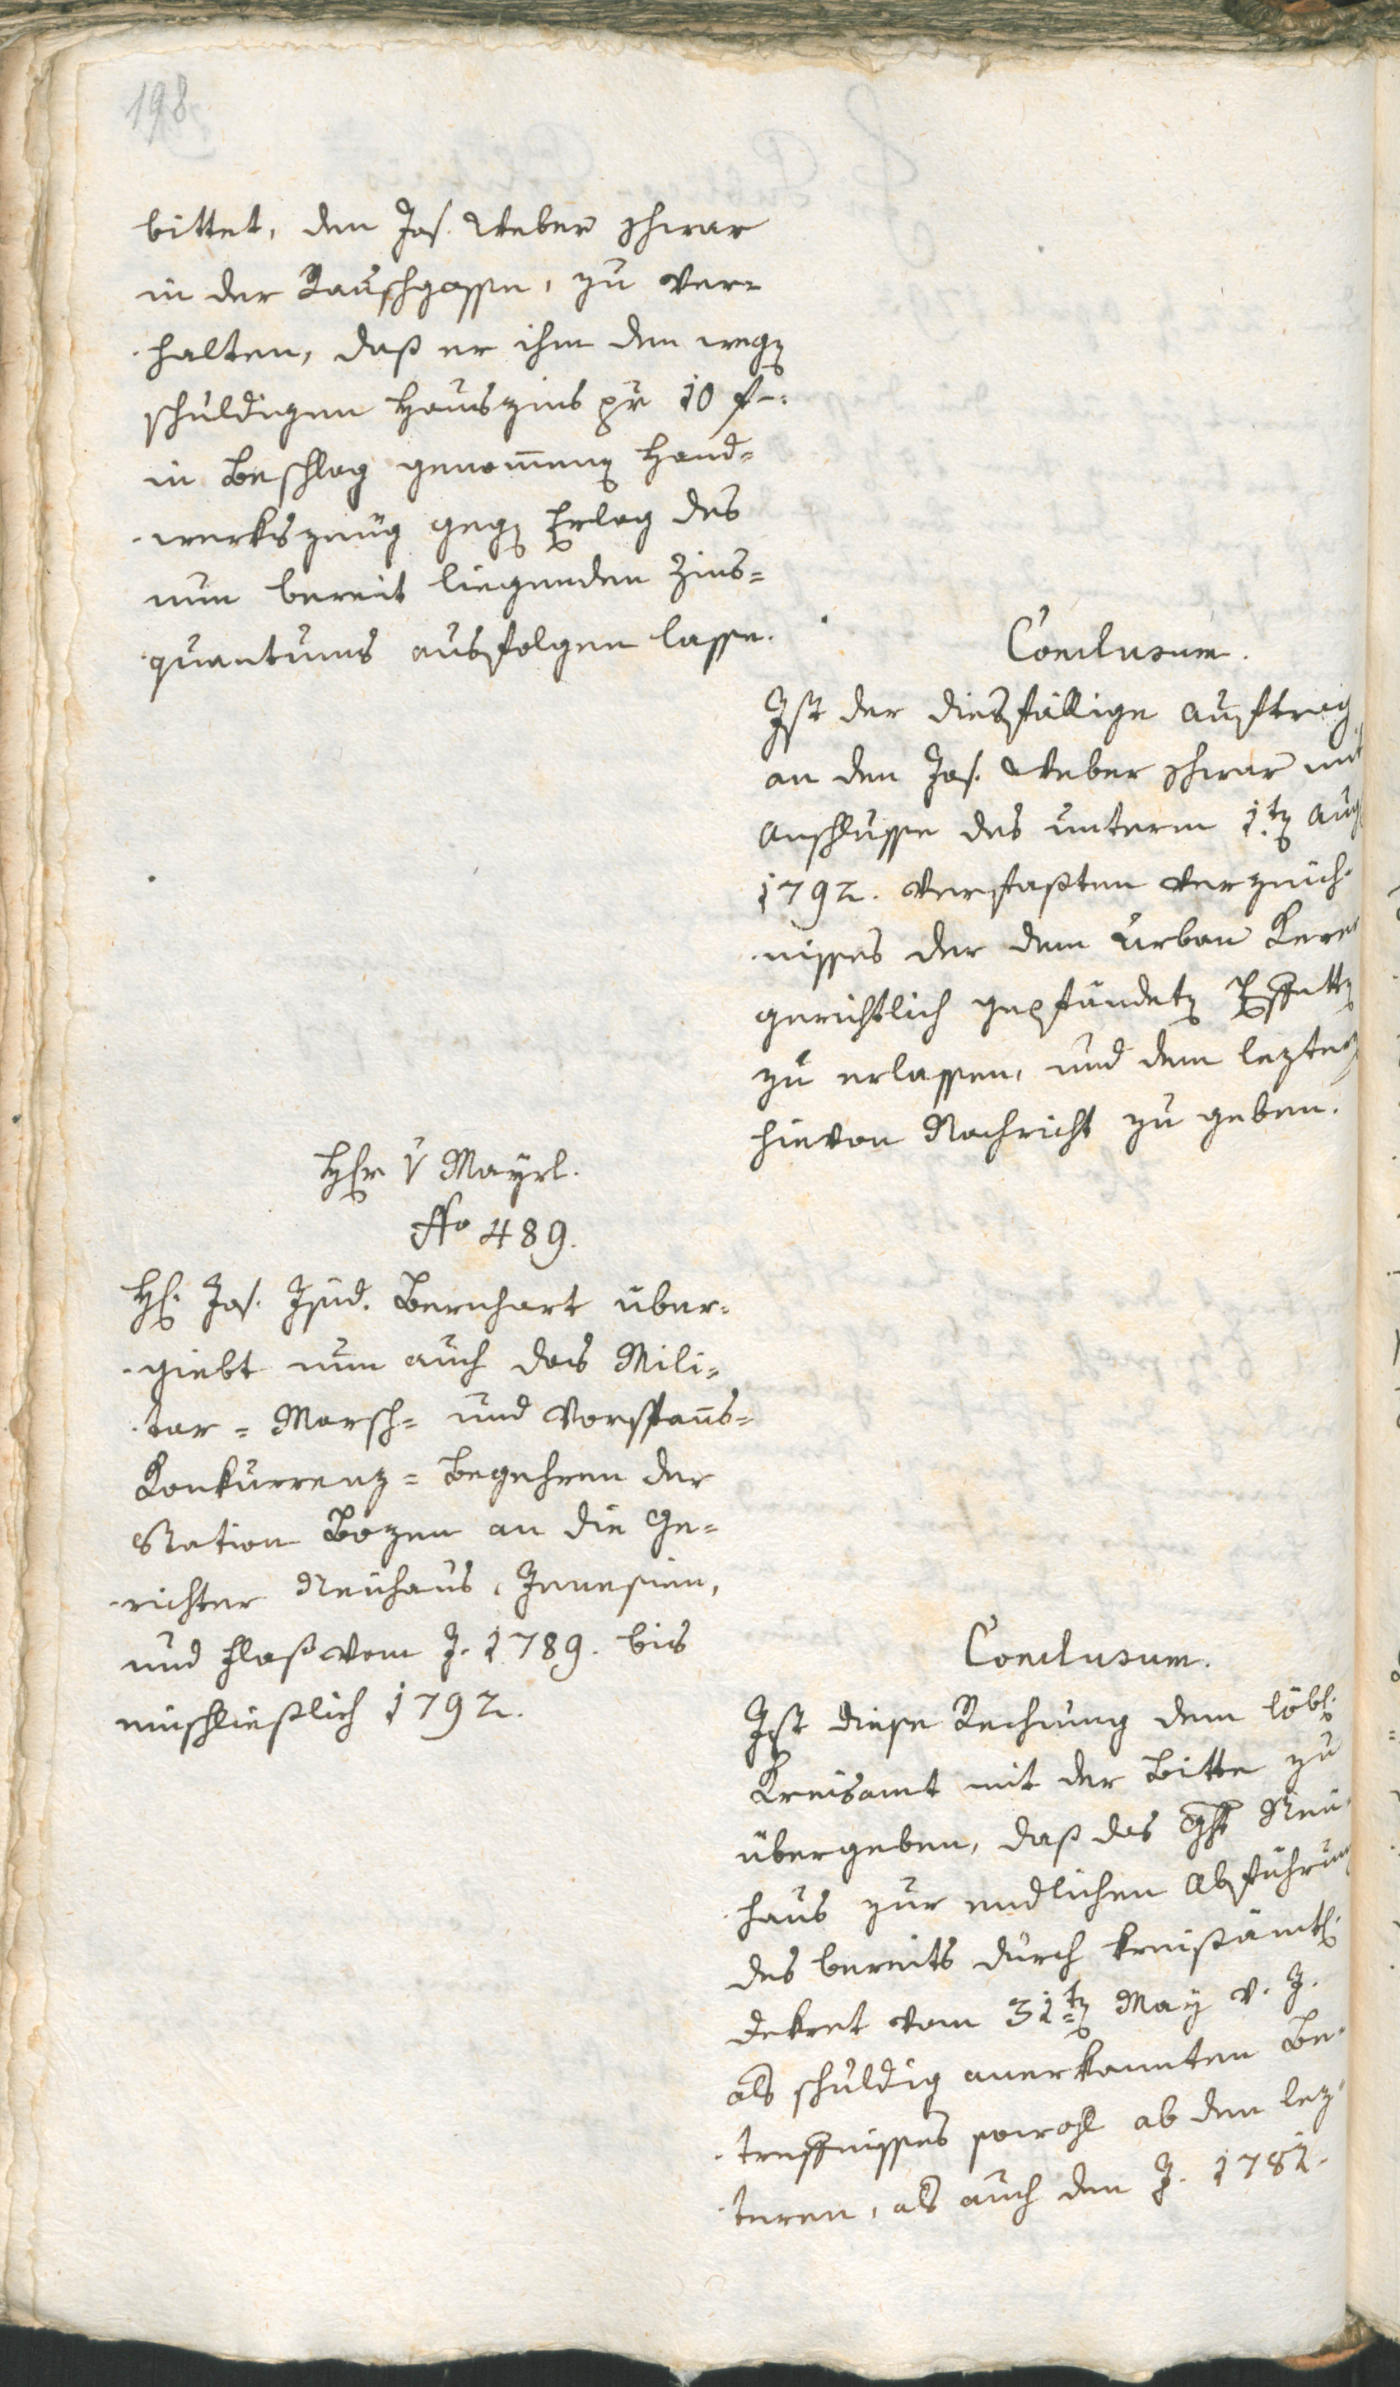 198
bittet, den Jos. Weber
in der Rauschgasse, zu ver=
halten, daß er ihm den wegen
schuldigen Hauszins pr 10 f
in Beschlag genommenen Hand=
werkszeug gegen Erlag des
nun bereit liegenden Zins=
quantums ausfolgen lasse.
Conclusum.
Ist der diesfällige Auftrag
an den Jos. Weber mit
Anschlusse des unterm 1ten Aug
1792. verfaßten Verzeich=
nisses der dem Urban
gerichtlich gepfändeten Effetten
zu erlassen, und dem leztern
hievon Nachricht zu geben.
Hr v Mayrl.
No 489.
H. Jos. Isid. Bernhart über=
giebt nun auch das Mili=
tar= Marsch= und Vorspanns=
Konkurrenz= Begehren der
Station Bozen an die Ge=
richter Neuhaus, Jennesien,
und Flaß vom J. 1789. bis
einschließlich 1792.
Conclusum.
Ist diese Rechnung dem löbl.
Kreisamt mit der Bitte zu
übergeben, daß das Ght Neu=
haus zur endlichen Abführung
des bereits durch kreisämtl.
Dekret vom 31ten May v. J.
als schuldig anerkannten Be=
treffnisses sowohl ab den lez=
teren, als auch den J. 1781.